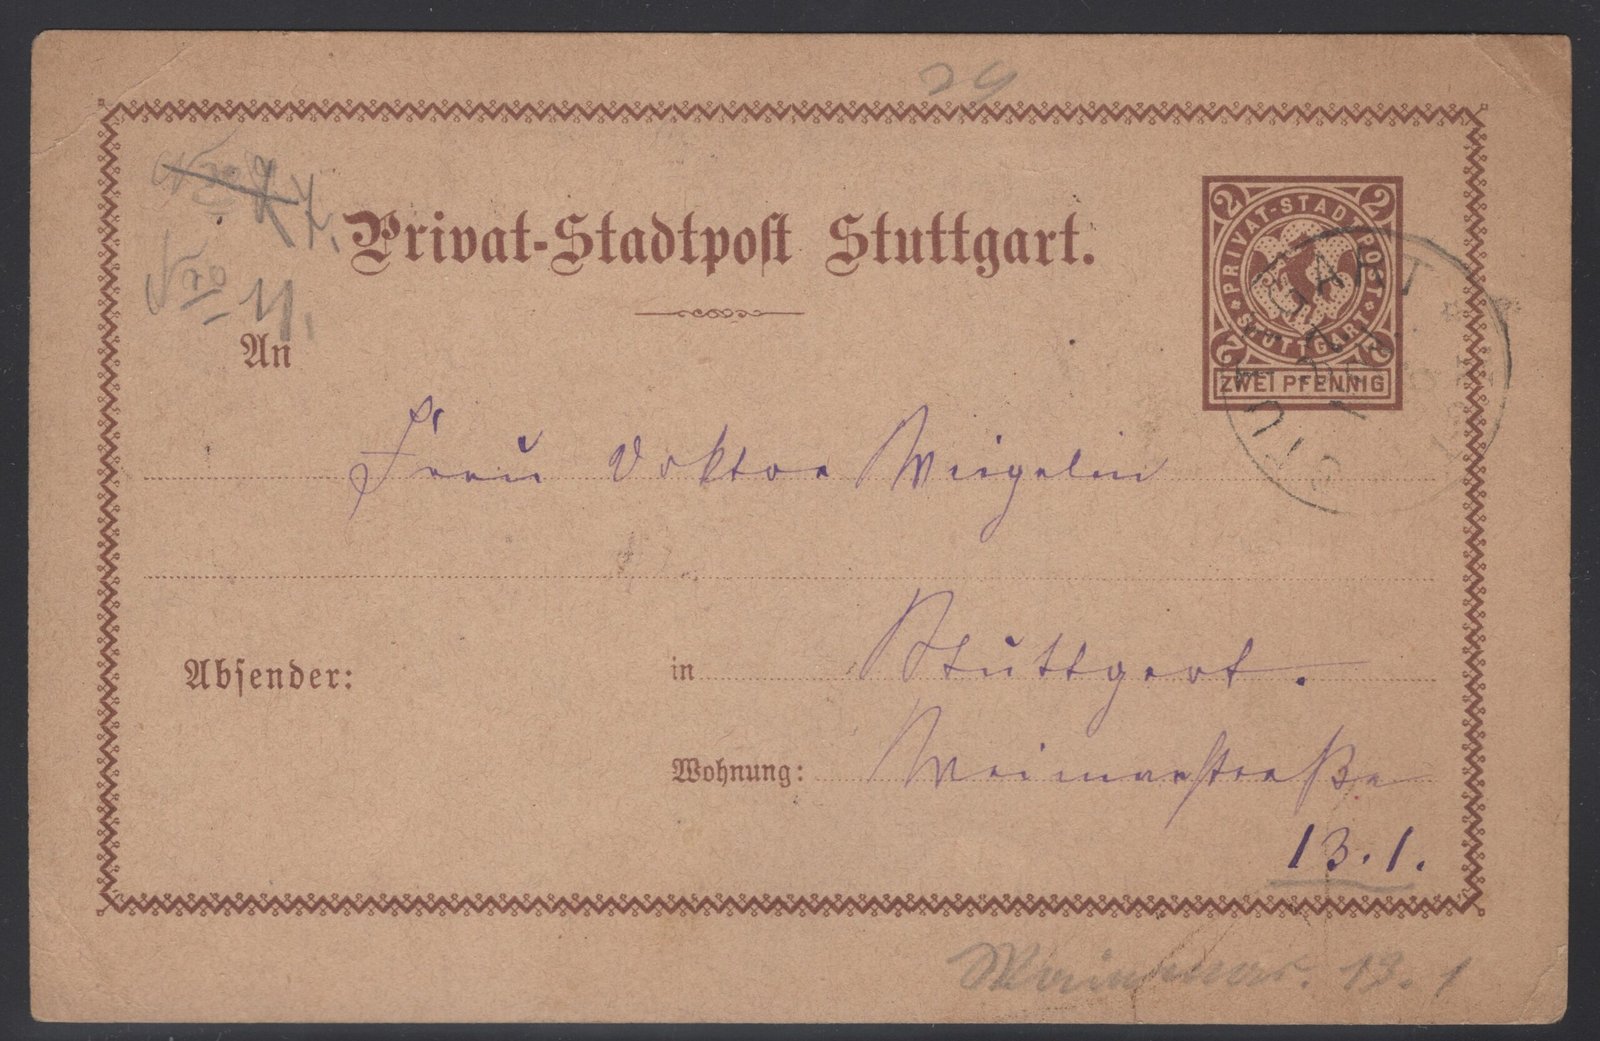 24
Privat-Stadtpost Stuttgart.
2 2
PRIVAT-STADTPOST
STUTTGART
2 2
ZWEI PFENNIG
STUTTGART
An
Frau Doktor Weigelin
in Stuttgart.
Absender:
Wohnung: Weimarstraße
13.1.
Weimar. 13.1